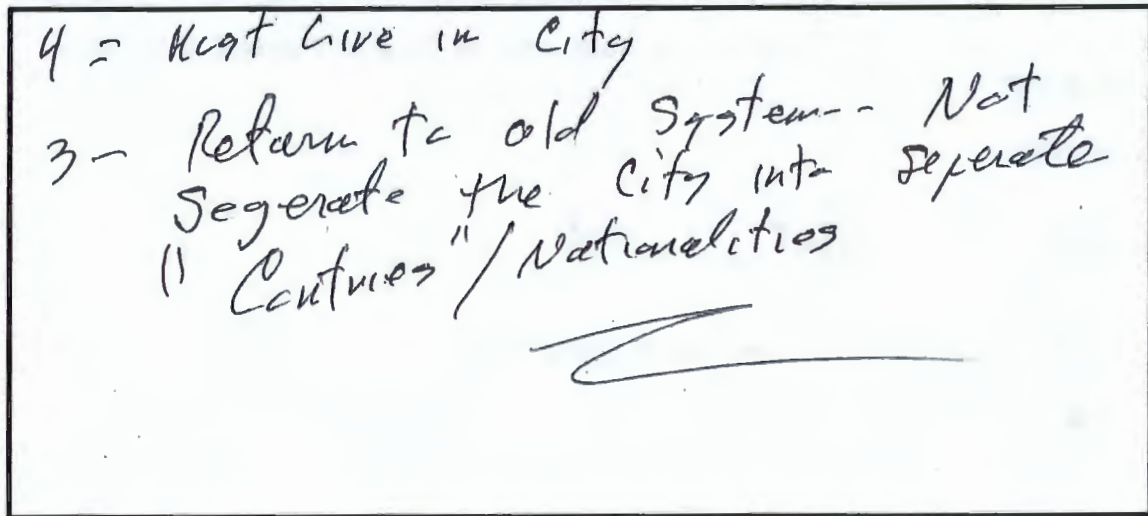 4 = Must Live in City
3 - Return to old System-- Not
Segerate the City into Seperate
"Contries" / Nationalities